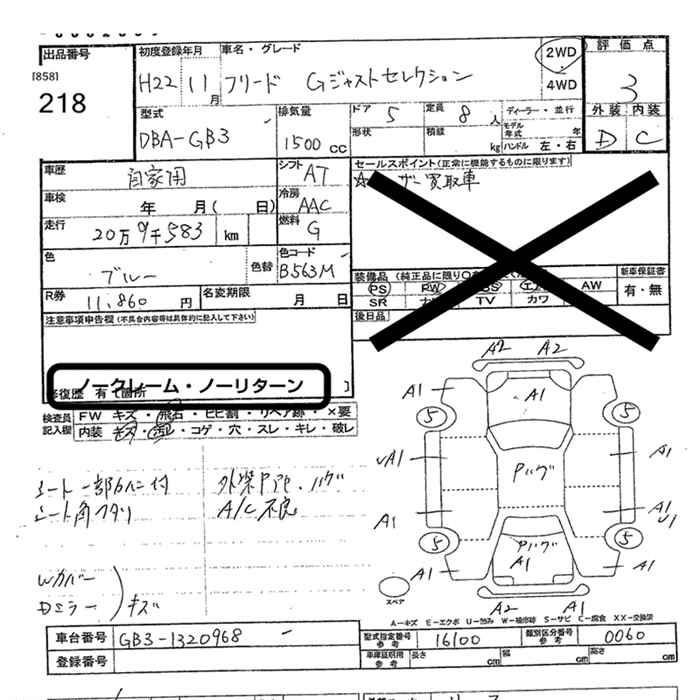 出品番号
[858]
218
初度登録年月
H22 11月
車名・グレード
フリード Gジャストセレクション
2WD
4WD
評価点
3
外装 内装
D C
型式
DBA-GB3
排気量
1500 cc
ドア 5
定員 8人
ディーラー・並行
形状
積載 kg
モデル年式 年
ハンドル 左・右
車歴
自家用
シフト AT
セールスポイント(正常に機能するものに限ります)
ザー買取車
車検 年 月( 日)
冷房 AAC
走行
20万9千583 km
燃料 G
色
ブルー
色替
色コード
B563M
装備品
新車保証書
有・無
PS PW SS エ AW
SR ナ TV カワ
R券
11,860 円
名変期限 月 日
後日品
注意事項申告欄(不具合内容等は具体的に記入して下さい)
ノークレーム・ノーリターン
修復歴 有 箇所 ]
検査員記入欄
FW キズ・飛石・ヒビ割・リペア跡・×要
内装 キズ・汚レ・コゲ・穴・スレ・キレ・破レ
外装Pサビ・ハゲ
A/C不良
Wカバー
Dミラー キズ
A2 A2
A1 A1 A1
5 5
UA1 Pハゲ A1
A1 A1
U1
5 Pハゲ 5
A1 A1 A1
スペア
A2 A1
A-キズ E-エクボ U-凹み W-補修跡 S-サビ C-腐食 XX-交換済
車台番号
GB3-1320968
型式指定番号 参考
16100
類別区分番号 参考
0060
登録番号
車庫証明用 参考
長さ cm 幅 cm 高さ cm